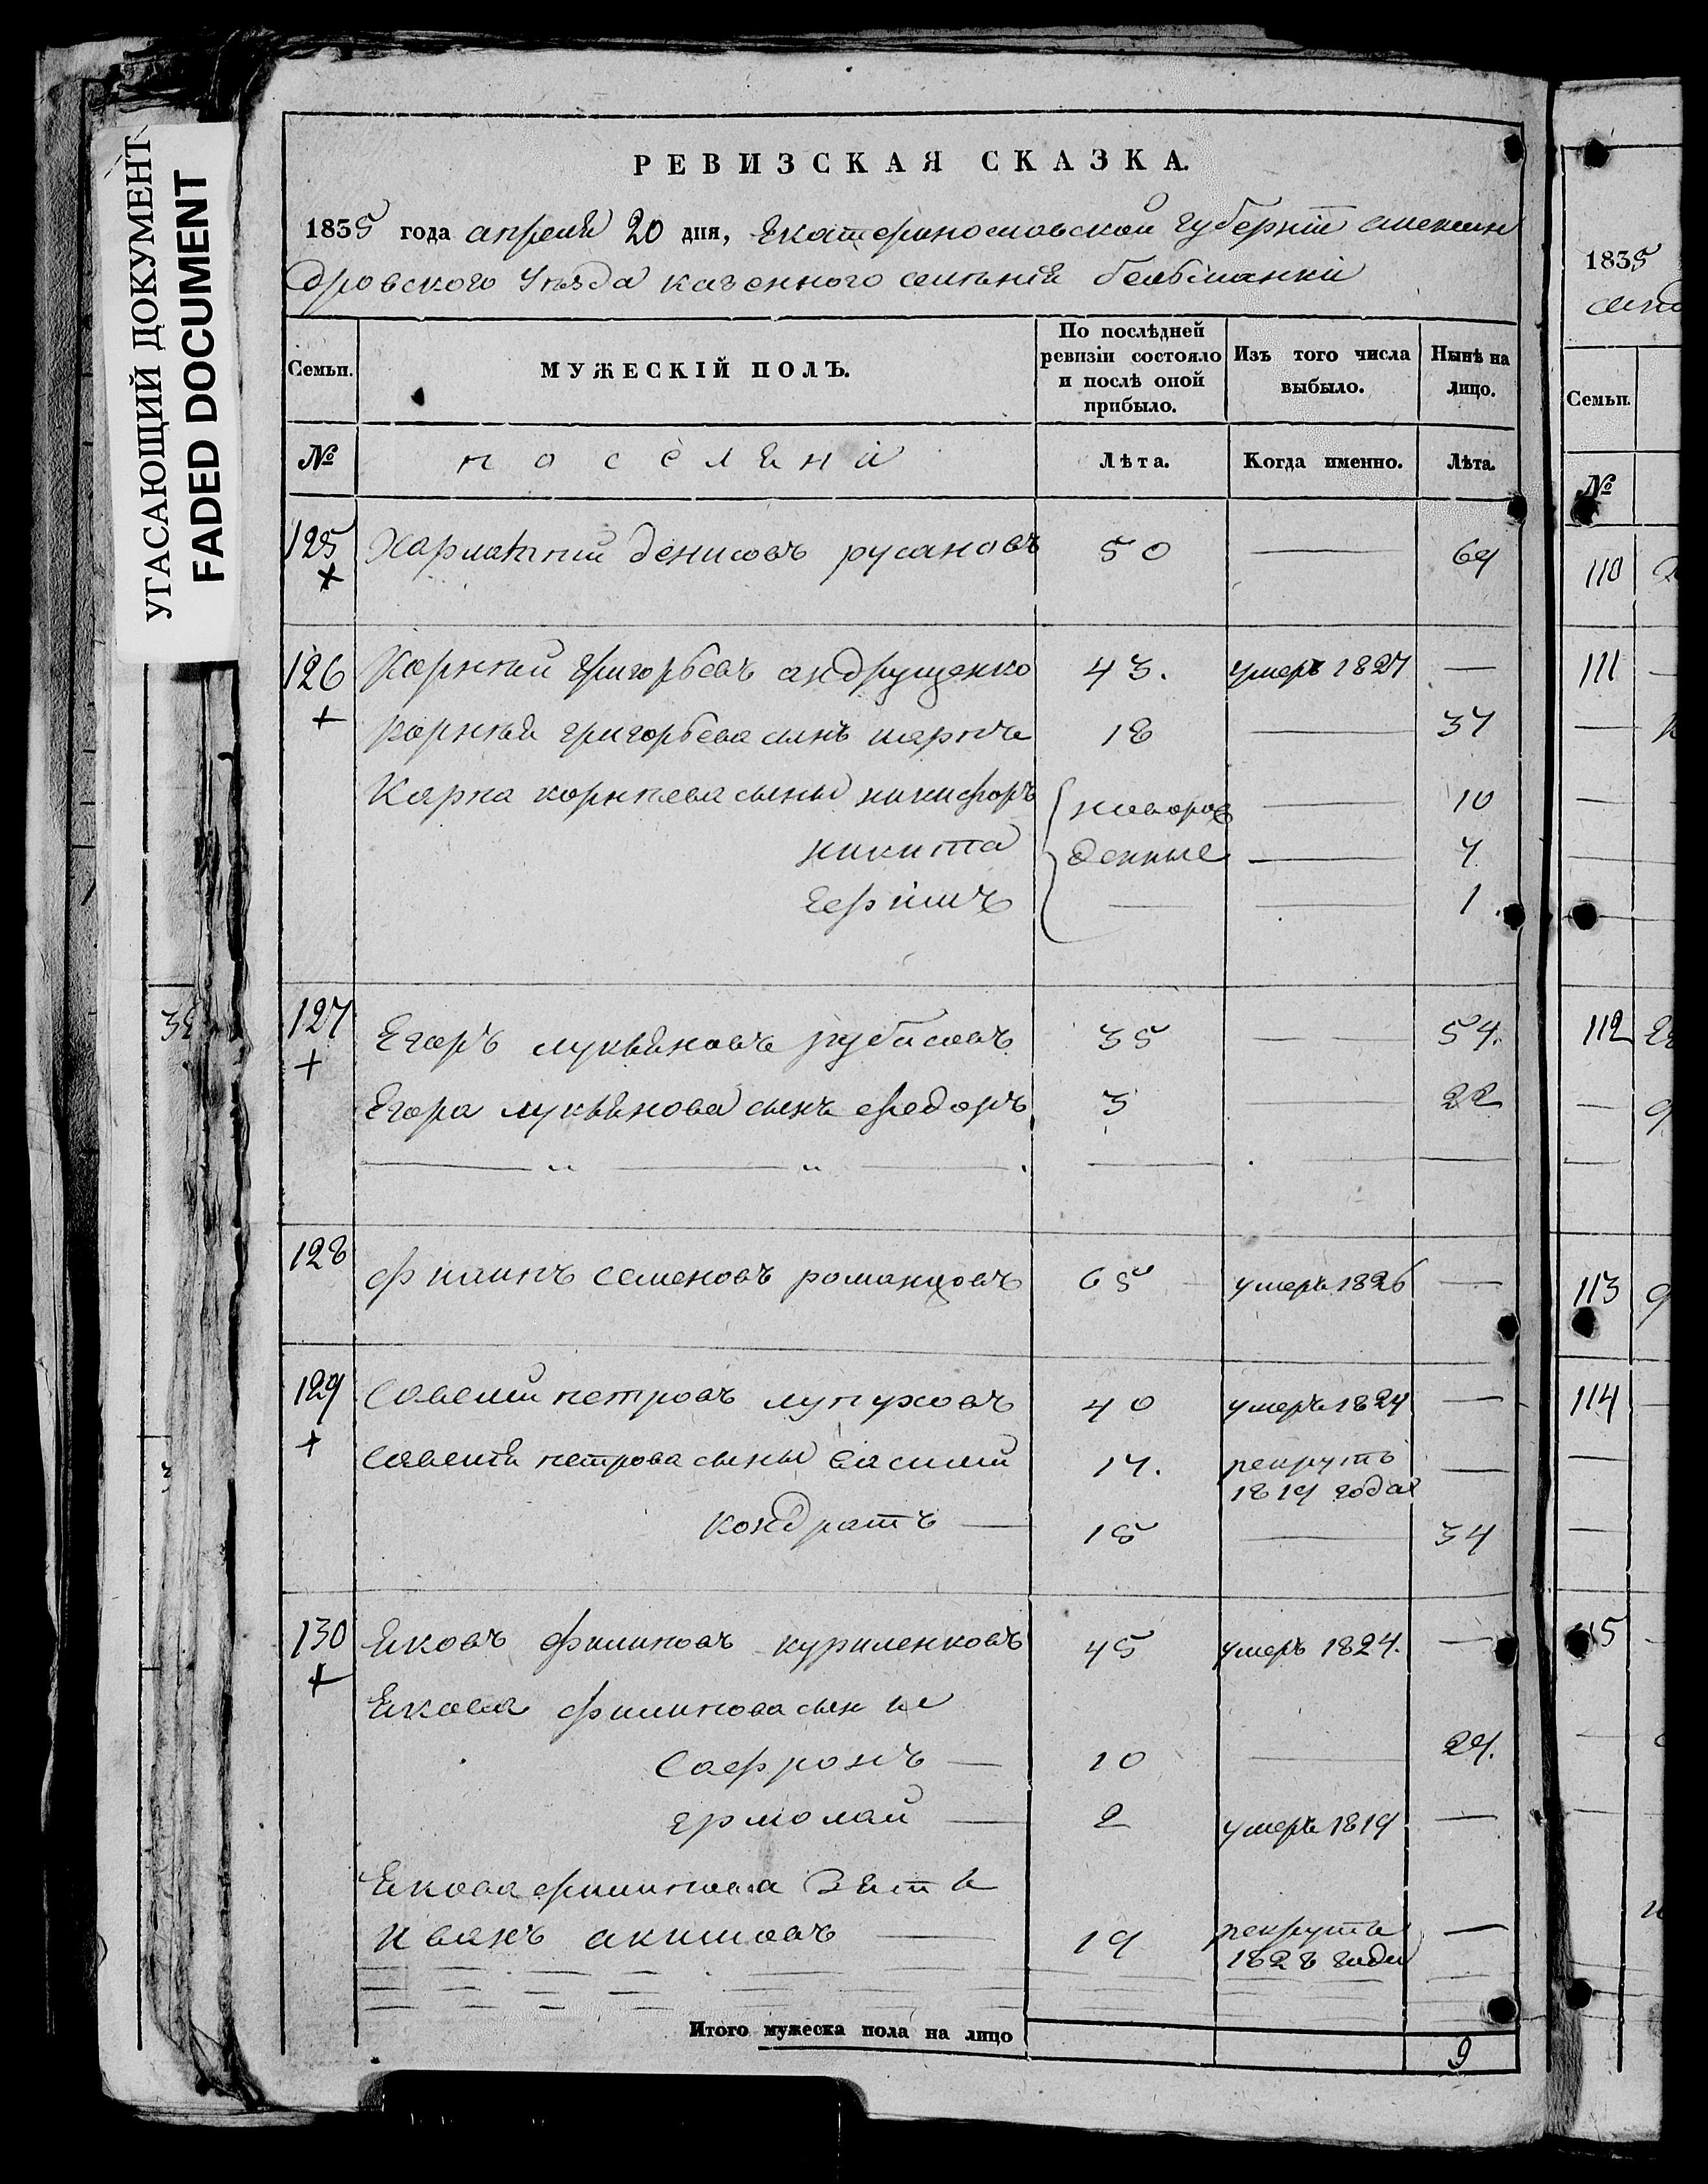 УГАСАЮЩИЙ ДОКУМЕНТ
FADED DOCUMENT
РЕВИЗСКАЯ СКАЗКА.
1835 года апреля 20 дня, Екатеринославской губернии алексан
дровского уѣзда казенного селѣния белѣманки
Семьи. МУЖЕСКІЙ ПОЛЪ. По послѣдней ревизіи состояло и послѣ оной прибыло. Изъ того числа выбыло. Нынѣ на лицо.
№ поселяни Лѣта. Когда именно. Лѣта.
125 Харлампий денисовъ русановъ 50 — 69
126 Корнѣй григорьевъ андрущенко 43. умеръ 1827 —
корнѣя григорьева сынъ карпъ 18 — 37
Карпа корнѣева сыны никифоръ новорож — 10
никита денные — 7
ефимъ — — 1.
127 Егоръ лукьяновъ рубцовъ 35 — 54.
Егора лукьянова сынъ федоръ 3 — 22
128 филипъ семеновъ романцовъ 65 умеръ 1826 —
129 Савелий петровъ лупуховъ 40 умеръ 1824 —
Савелія петрова сыны василий 17. рекрутъ —
1819 года
кондратъ — 15 — 34
130 Яковъ филиповъ куриленковъ 45 умеръ 1824. —
Якова филипова сыны
Сафронъ — 10 — 29.
ермолай — 2 умеръ 1819 —
Якова филипова зять
иванъ акимовъ — 19 рекрутъ —
1828 года
Итого мужеска пола на лицо 9
1835
Семьи.
№
110
111
112
113
114
115